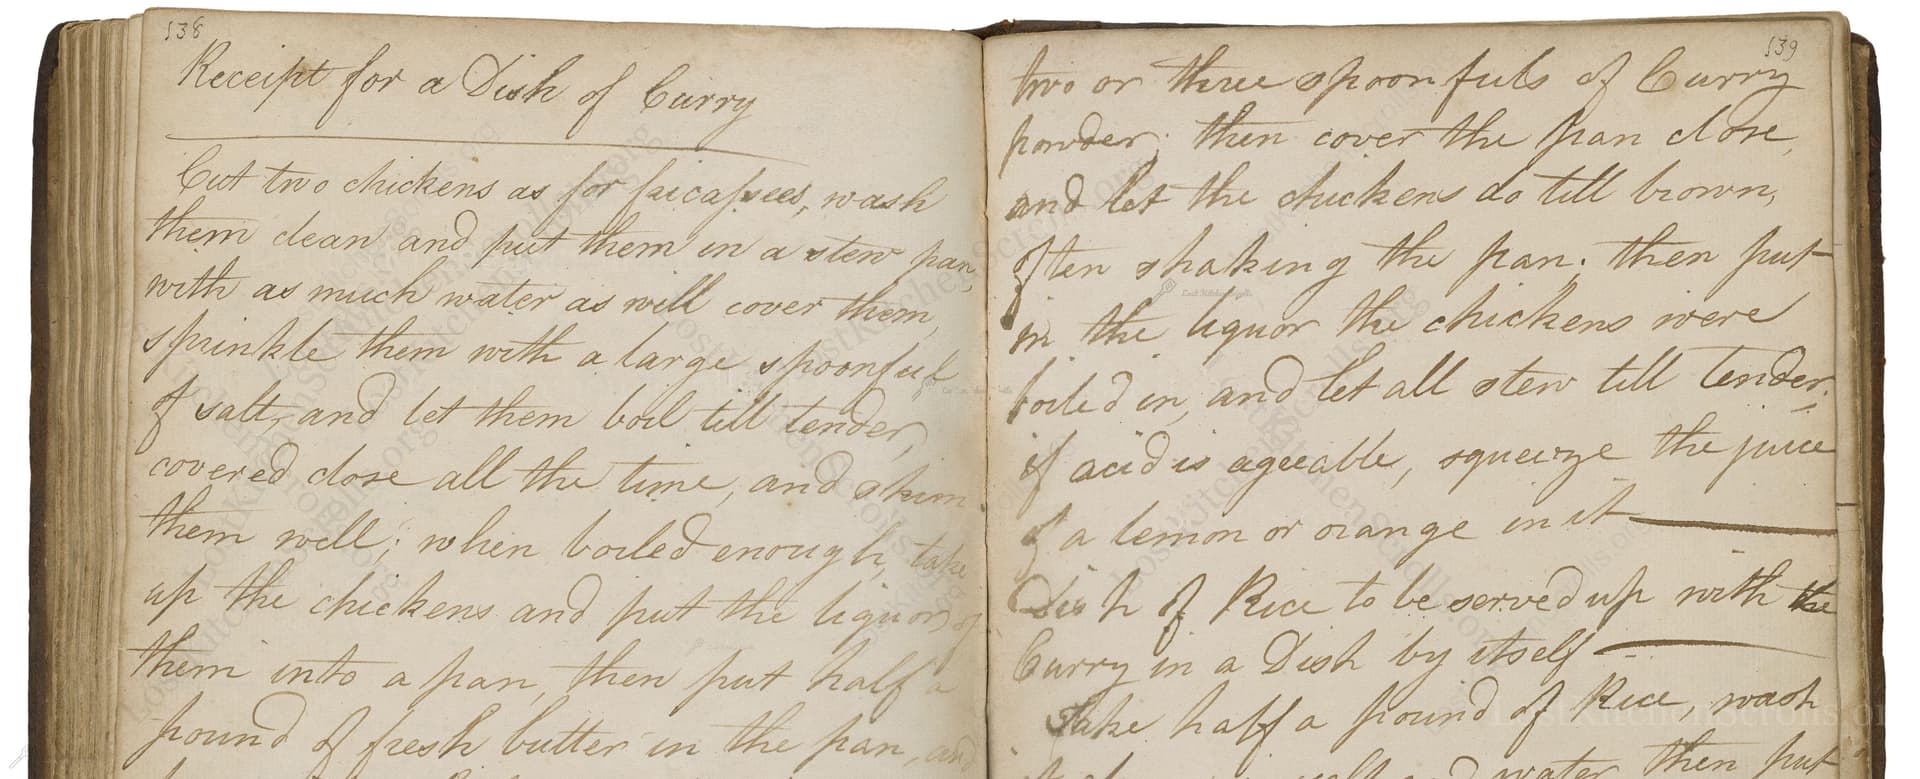 138
Receipt for a Dish of Curry
Cut two chickens as for fricaſsees, wash
them clean and put them in a stew pan,
with as much water as will cover them,
sprinkle them with a large spoonful
of salt, and let them boil till tender,
covered close all the time, and skim
them well; when boiled enough, take
up the chickens and put the liquor of
them into a pan, then put half a
pound of fresh butter in the pan, and
139
two or three spoonfuls of Curry
powder; then cover the pan close,
and let the chickens do till brown,
often shaking the pan; then put
in the liquor the chickens were
boiled in, and let all stew till tender;
if acid is agreeable, squeeze the juice
of a lemon or orange in it
Dish of Rice to be served up with the
Curry in a Dish by itself
Take half a pound of Rice, wash
salt and water then put
LostKitchenScrolls.org